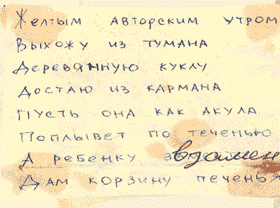 Желтым авторским утром
Выхожу из тумана
Деревянную куклу
Достаю из кармана
Пусть она как акула
Поплывет по теченью
А ребенку взамен
Дам корзину печенья